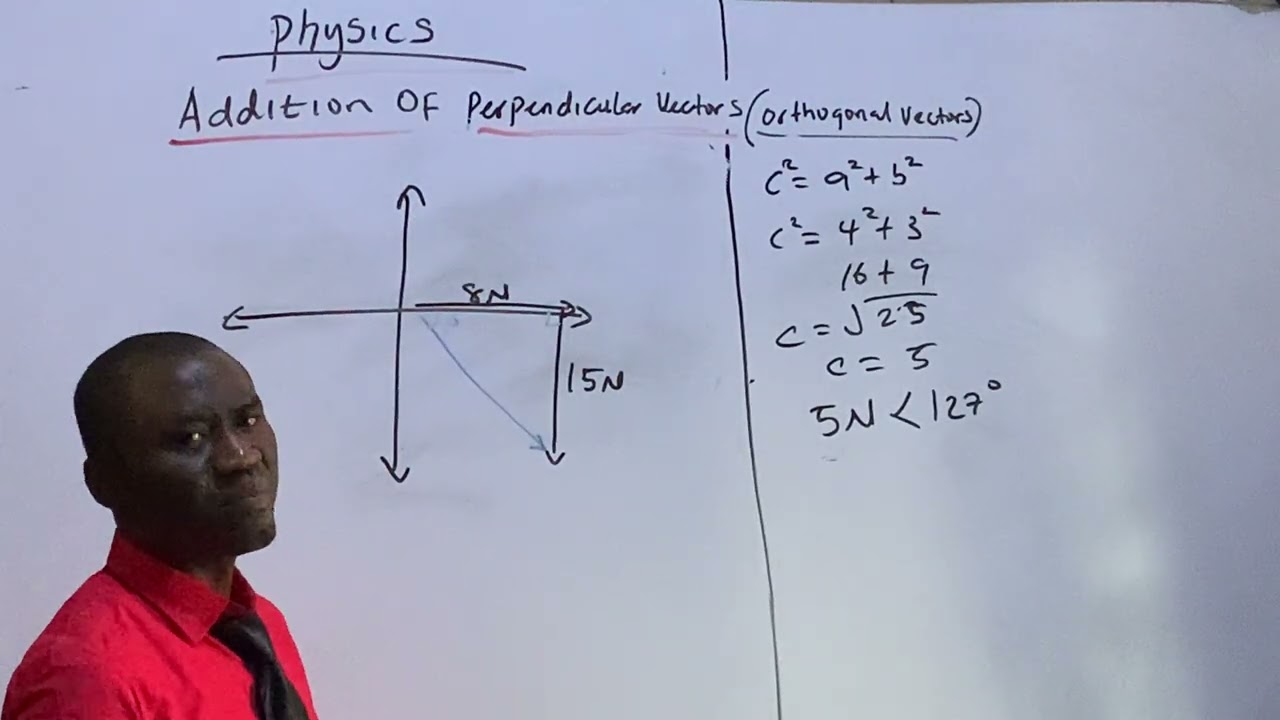 Physics
Addition OF Perpendicular Vectors (orthogonal vectors)
8N
15N
c² = a² + b²
c² = 4² + 3²
16 + 9
c = √25
c = 5
5N < 127°